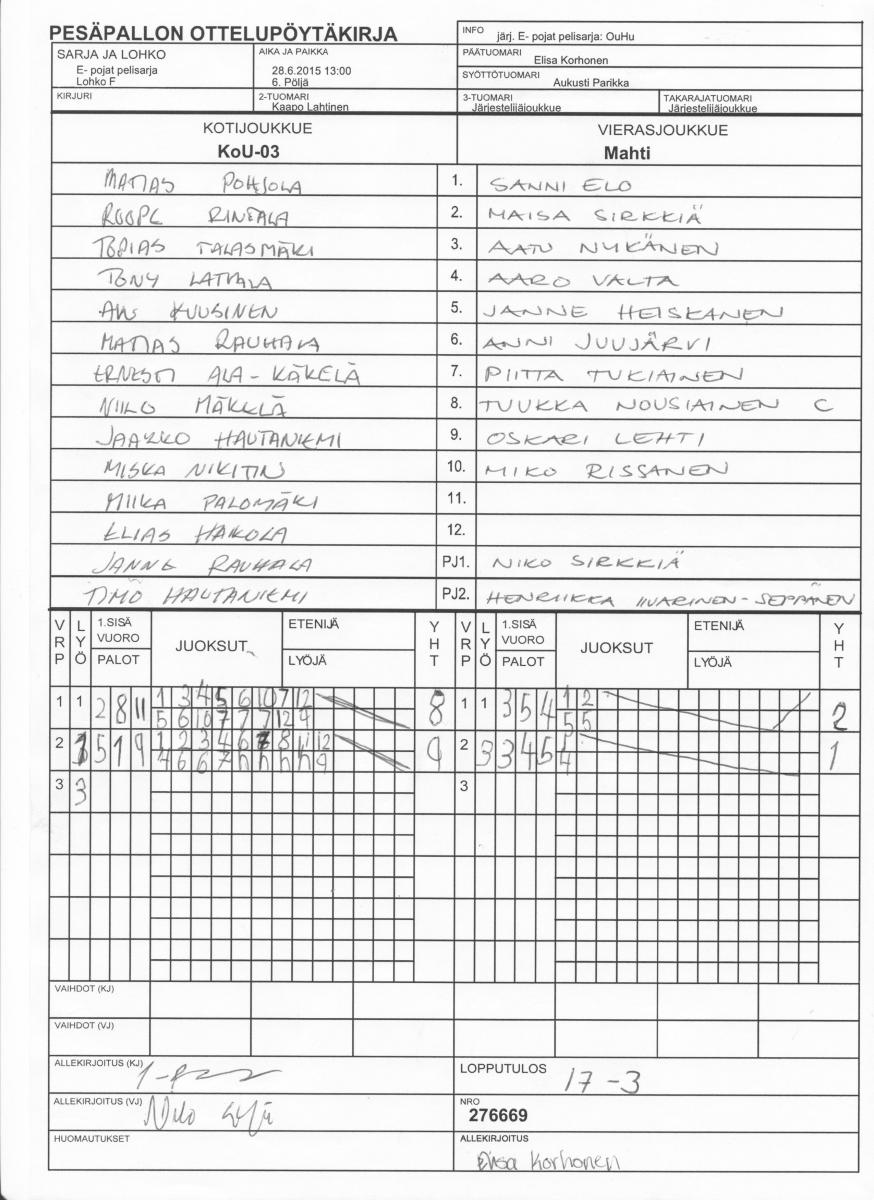 PESÄPALLON OTTELUPÖYTÄKIRJA
INFO järj. E- pojat pelisarja: OuHu
SARJA JA LOHKO
E- pojat pelisarja
Lohko F
AIKA JA PAIKKA
28.6.2015 13:00
6. Pöljä
PÄÄTUOMARI
Elisa Korhonen
SYÖTTÖTUOMARI
Aukusti Parikka
KIRJURI
2-TUOMARI
Kaapo Lahtinen
3-TUOMARI
Järjestelijäjoukkue
TAKARAJATUOMARI
Järjestelijäjoukkue
KOTIJOUKKUE
KoU-03
VIERASJOUKKUE
Mahti
MATIAS POHJOLA 1. SANNI ELO
ROOPE RINTALA 2. MAISA SIRKKIÄ
TOPIAS TALASMÄKI 3. AATU NYKÄNEN
TONY LATVALA 4. AARO VALTA
KUUSINEN 5. JANNE HEISKANEN
MATIAS RAUHALA 6. ANNI JUUJÄRVI
ERNESTI ALA-KÄKELÄ 7. PIITTA TUKIAINEN
NIILO MÄKELÄ 8. TUUKKA NOUSIAINEN C
JAAKKO HAUTANIEMI 9. OSKARI LEHTI
MISKA NIKITIN 10. MIKO RISSANEN
MIIKA PALOMÄKI 11.
ELIAS HAKOLA 12.
JANNE RAUHALA PJ1. NIKO SIRKKIÄ
TIMO HAUTANIEMI PJ2. HENRIIKKA IIVARINEN-SEPPÄNEN
VRP LYÖ 1.SISÄ VUORO PALOT JUOKSUT ETENIJÄ LYÖJÄ YHT VRP LYÖ 1.SISÄ VUORO PALOT JUOKSUT ETENIJÄ LYÖJÄ YHT
1 1 2 8 11 1 3 4 5 6 10 7 12 8 1 1 3 5 4 1 2 2
5 6 10 7 7 7 12 9 5 5
2 5 1 9 1 2 3 4 6 7 8 11 12 9 2 3 3 4 5 4 1
4 6 6 7 h h h h 9 4
3 3 3
VAIHDOT (KJ)
VAIHDOT (VJ)
ALLEKIRJOITUS (KJ)
LOPPUTULOS 17-3
ALLEKIRJOITUS (VJ) Niko
NRO
276669
HUOMAUTUKSET
ALLEKIRJOITUS
Elisa Korhonen